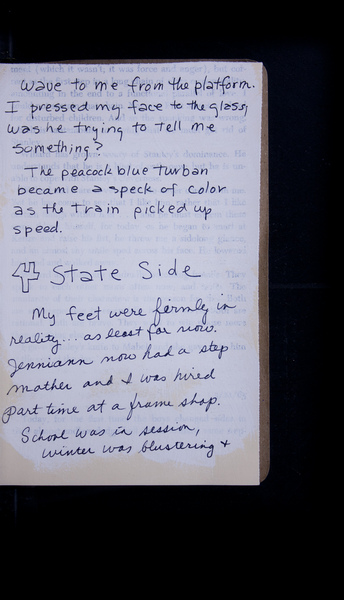 wave to me from the platform.
I pressed my face to the glass,
was he trying to tell me
something?
The peacock blue turban
became a speck of color
as the train picked up
speed.
State Side
My feet were firmly in
reality... as least for now.
Jenniann now had a step
mother and I was hired
part time at a frame shop.
School was in session,
winter was blustering +